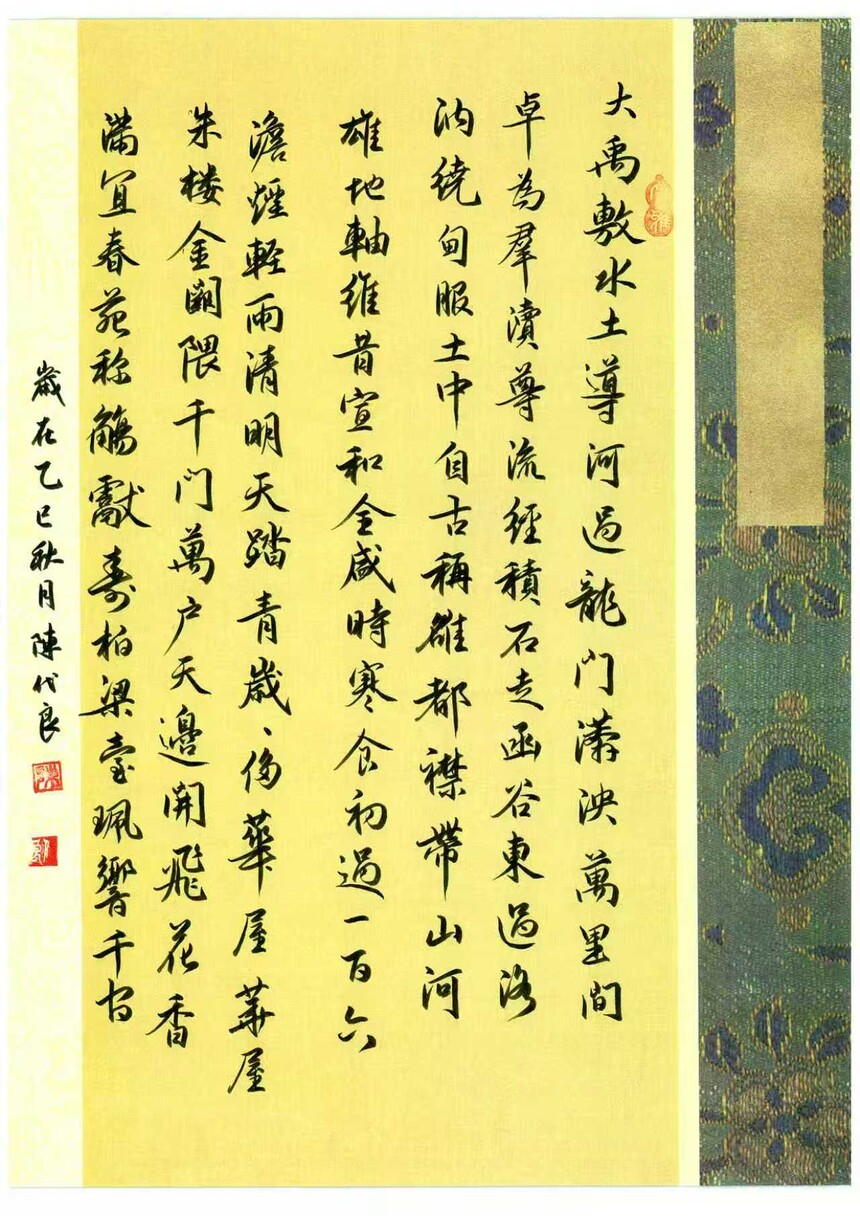 大禹敷水土導河過龍門漭泱萬里間
卓為羣瀆尊流經積石走函谷東過洛
汭繞甸服土中自古稱雄都襟帶山河
雄地軸維昔宣和全盛時寒食初過一百六
澹煙輕雨清明天踏青歲、傍華屋華屋
朱樓金闕隈千門萬户天邊開飛花香
滿宜春苑称觴獻壽柏梁臺珮響千官
歲在乙巳秋月陳代良